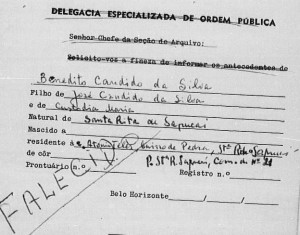 DELEGACIA ESPECIALIZADA DE ORDEM PÚBLICA
Senhor Chefe da Seção de Arquivo:
Solicito-vos a fineza de informar os antecedentes de
Benedito Candido da Silva
Filho de José Candido da Silva
e de Custódia Maria
Natural de Santa Rita de Sapucaí
Nascido a
residente de Pedra, Sta Rita Sapucaí
de côr P. Sta R. Sapucaí,
Prontuário n.o Registro n.o
FALECID
Belo Horizonte, / /